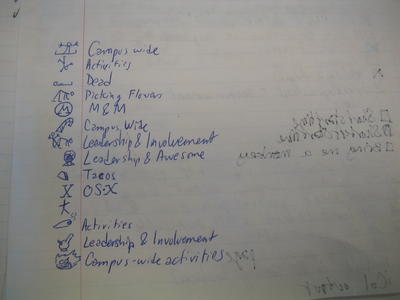 Campus wide
Activities
Dead
Picking Flowers
M M&M
Campus Wide
Leadership & Involvement
Leadership & Awesome
Tacos
X OS-X
Activities
Leadership & Involvement
Campus-wide activities